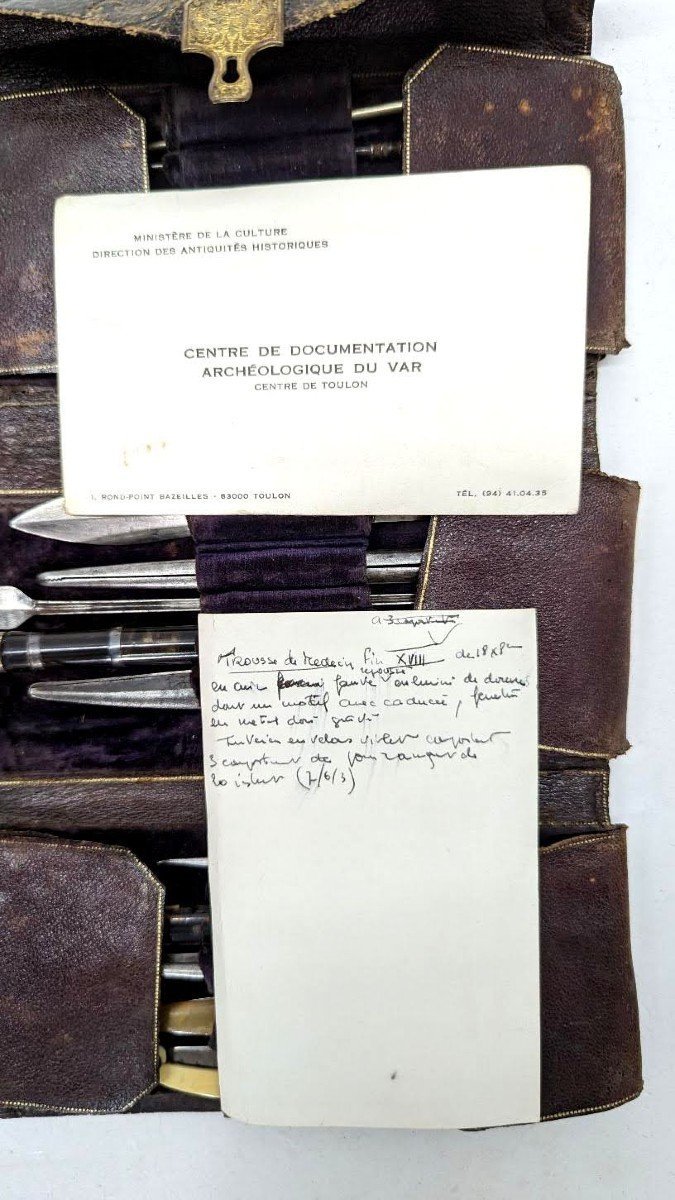 MINISTÈRE DE LA CULTURE
DIRECTION DES ANTIQUITÉS HISTORIQUES
CENTRE DE DOCUMENTATION
ARCHÉOLOGIQUE DU VAR
CENTRE DE TOULON
1, ROND-POINT BAZEILLES - 83000 TOULON
TÉL. (94) 41.04.35
Trousse de Medecin Fin XVIII de 18x8cm
en cuir fauve enluminé de dorures
dont un motif avec caducée, fenêtré
en metal doré gravé
Interieur en velours violet
3 de
20 (7/6/3)